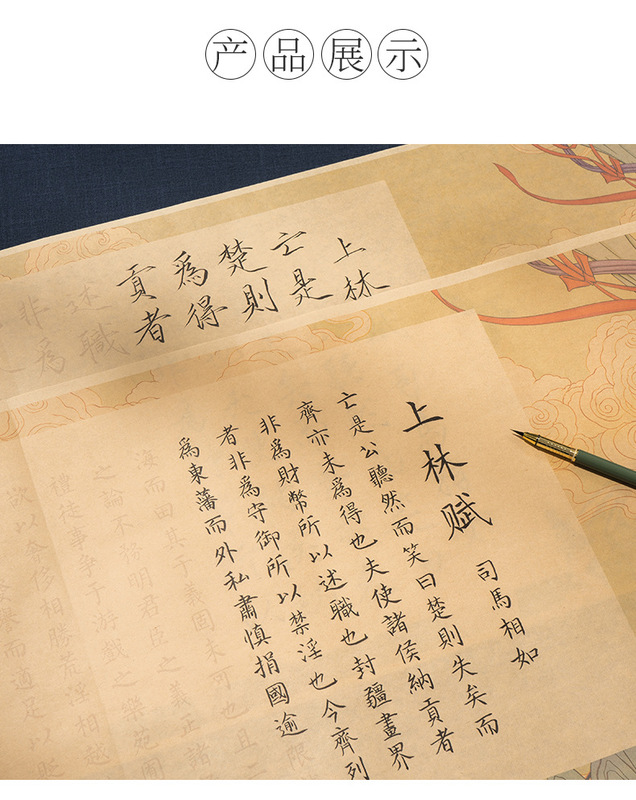 产品展示
上林
亡是
楚則
為得
貢者
述職
非為
上林赋
司馬相如
亡是公聽然而笑曰楚則失矣而
齊亦未為得也夫使諸侯納貢者
非為財幣所以述職也封疆畫界
者非為守御所以禁淫也今齊列
為東藩而外私肅慎捐國逾
限
海而田其于義固未可也且二
之論不務明君臣之義正諸
徒事爭于游戲之樂苑囿
欲以奢侈相勝荒淫相越
而適足以貶